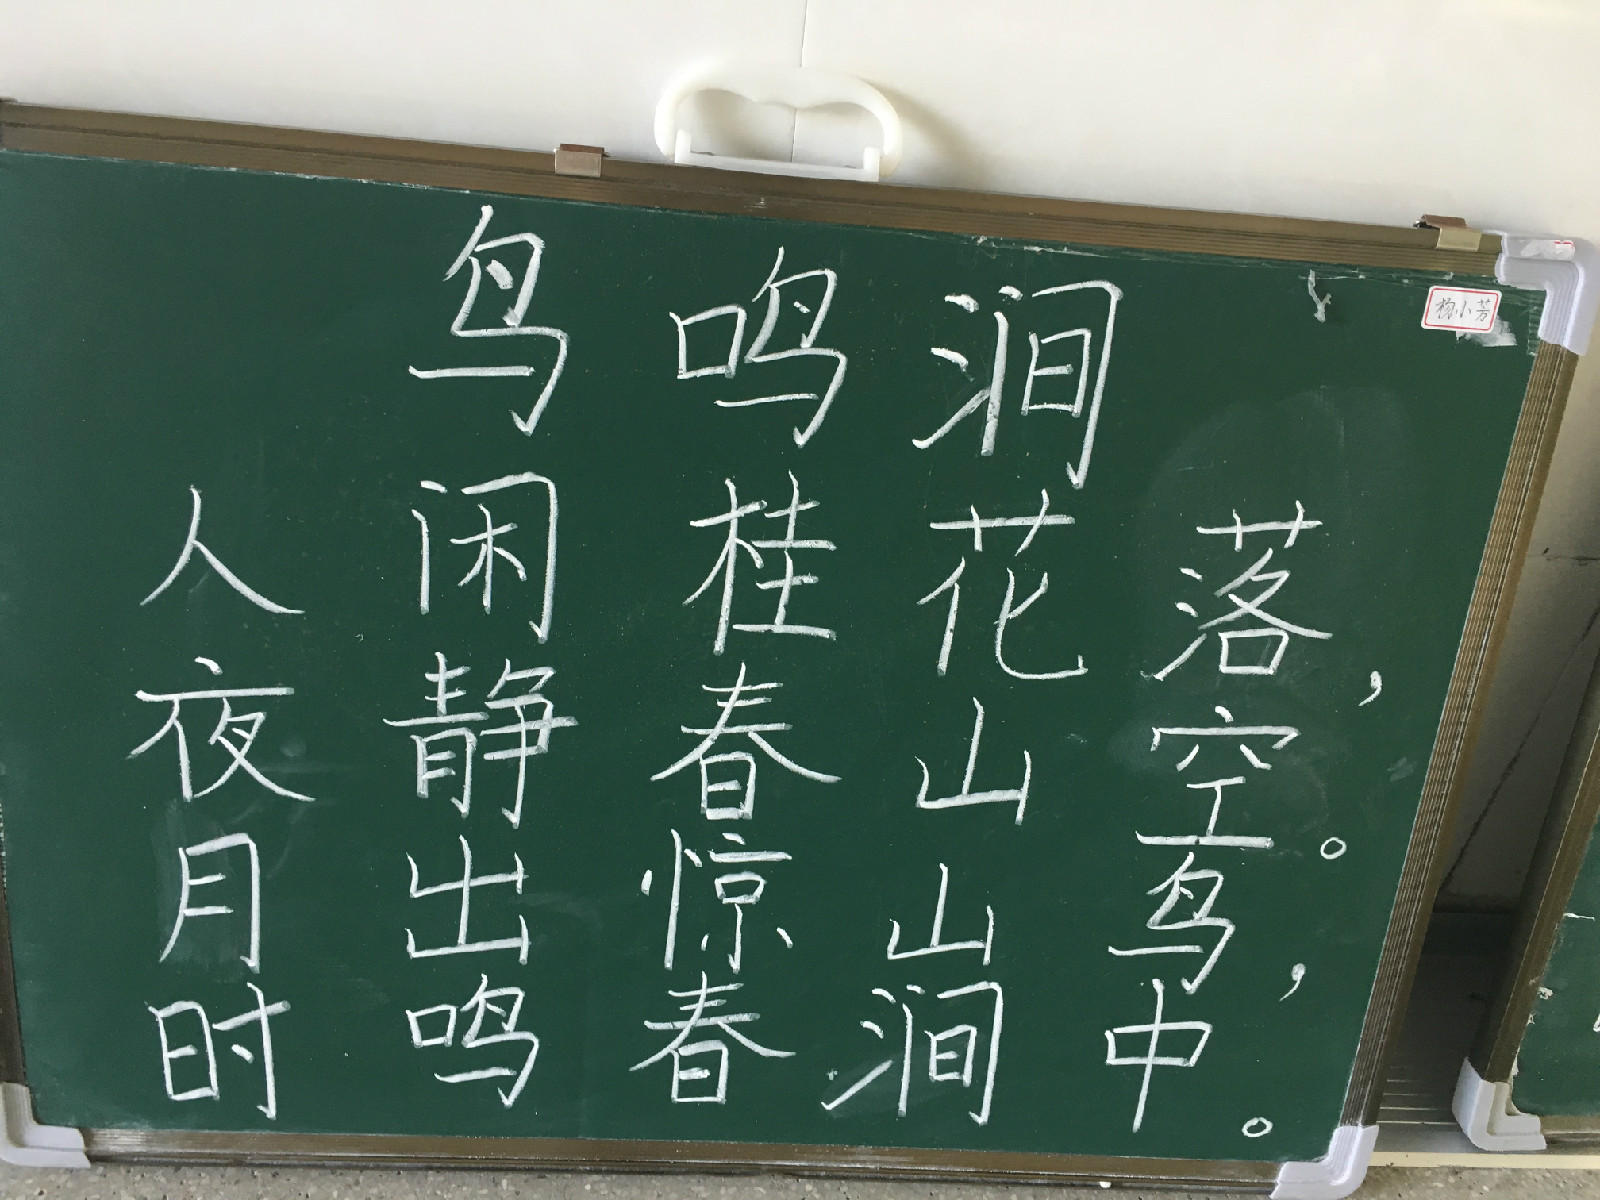 鸟鸣涧
人闲桂花落，
夜静春山空。
月出惊山鸟，
时鸣春涧中。
小芳